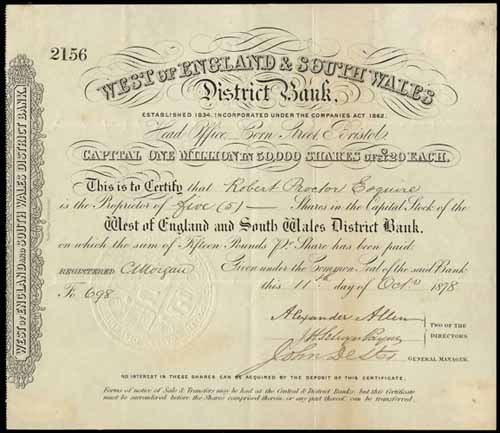 2156
WEST OF ENGLAND & SOUTH WALES
District Bank,
ESTABLISHED 1834. INCORPORATED UNDER THE COMPANIES ACT 1862.
Head Office, Corn Street, Bristol.
CAPITAL ONE MILLION IN 50,000 SHARES OF £20 EACH.
This is to Certify that Robert Proctor Esquire
is the Proprietor of Five (5) Shares in the Capital Stock of the
West of England and South Wales District Bank,
on which the sum of Fifteen Pounds Pr. Share has been paid.
REGISTERED CMorgan Given under the Common Seal of the said Bank
Fo 698 this 11th day of Octr 1878
Alexander Allen
TWO OF THE
DIRECTORS
GENERAL MANAGER.
NO INTEREST IN THESE SHARES CAN BE ACQUIRED BY THE DEPOSIT OF THIS CERTIFICATE.
Forms of notice of Sale & Transfers may be had at the Central & District Banks; but this Certificate
must be surrendered before the Shares comprised therein, or any part thereof, can be transferred.
WEST OF ENGLAND AND SOUTH WALES DISTRICT BANK.